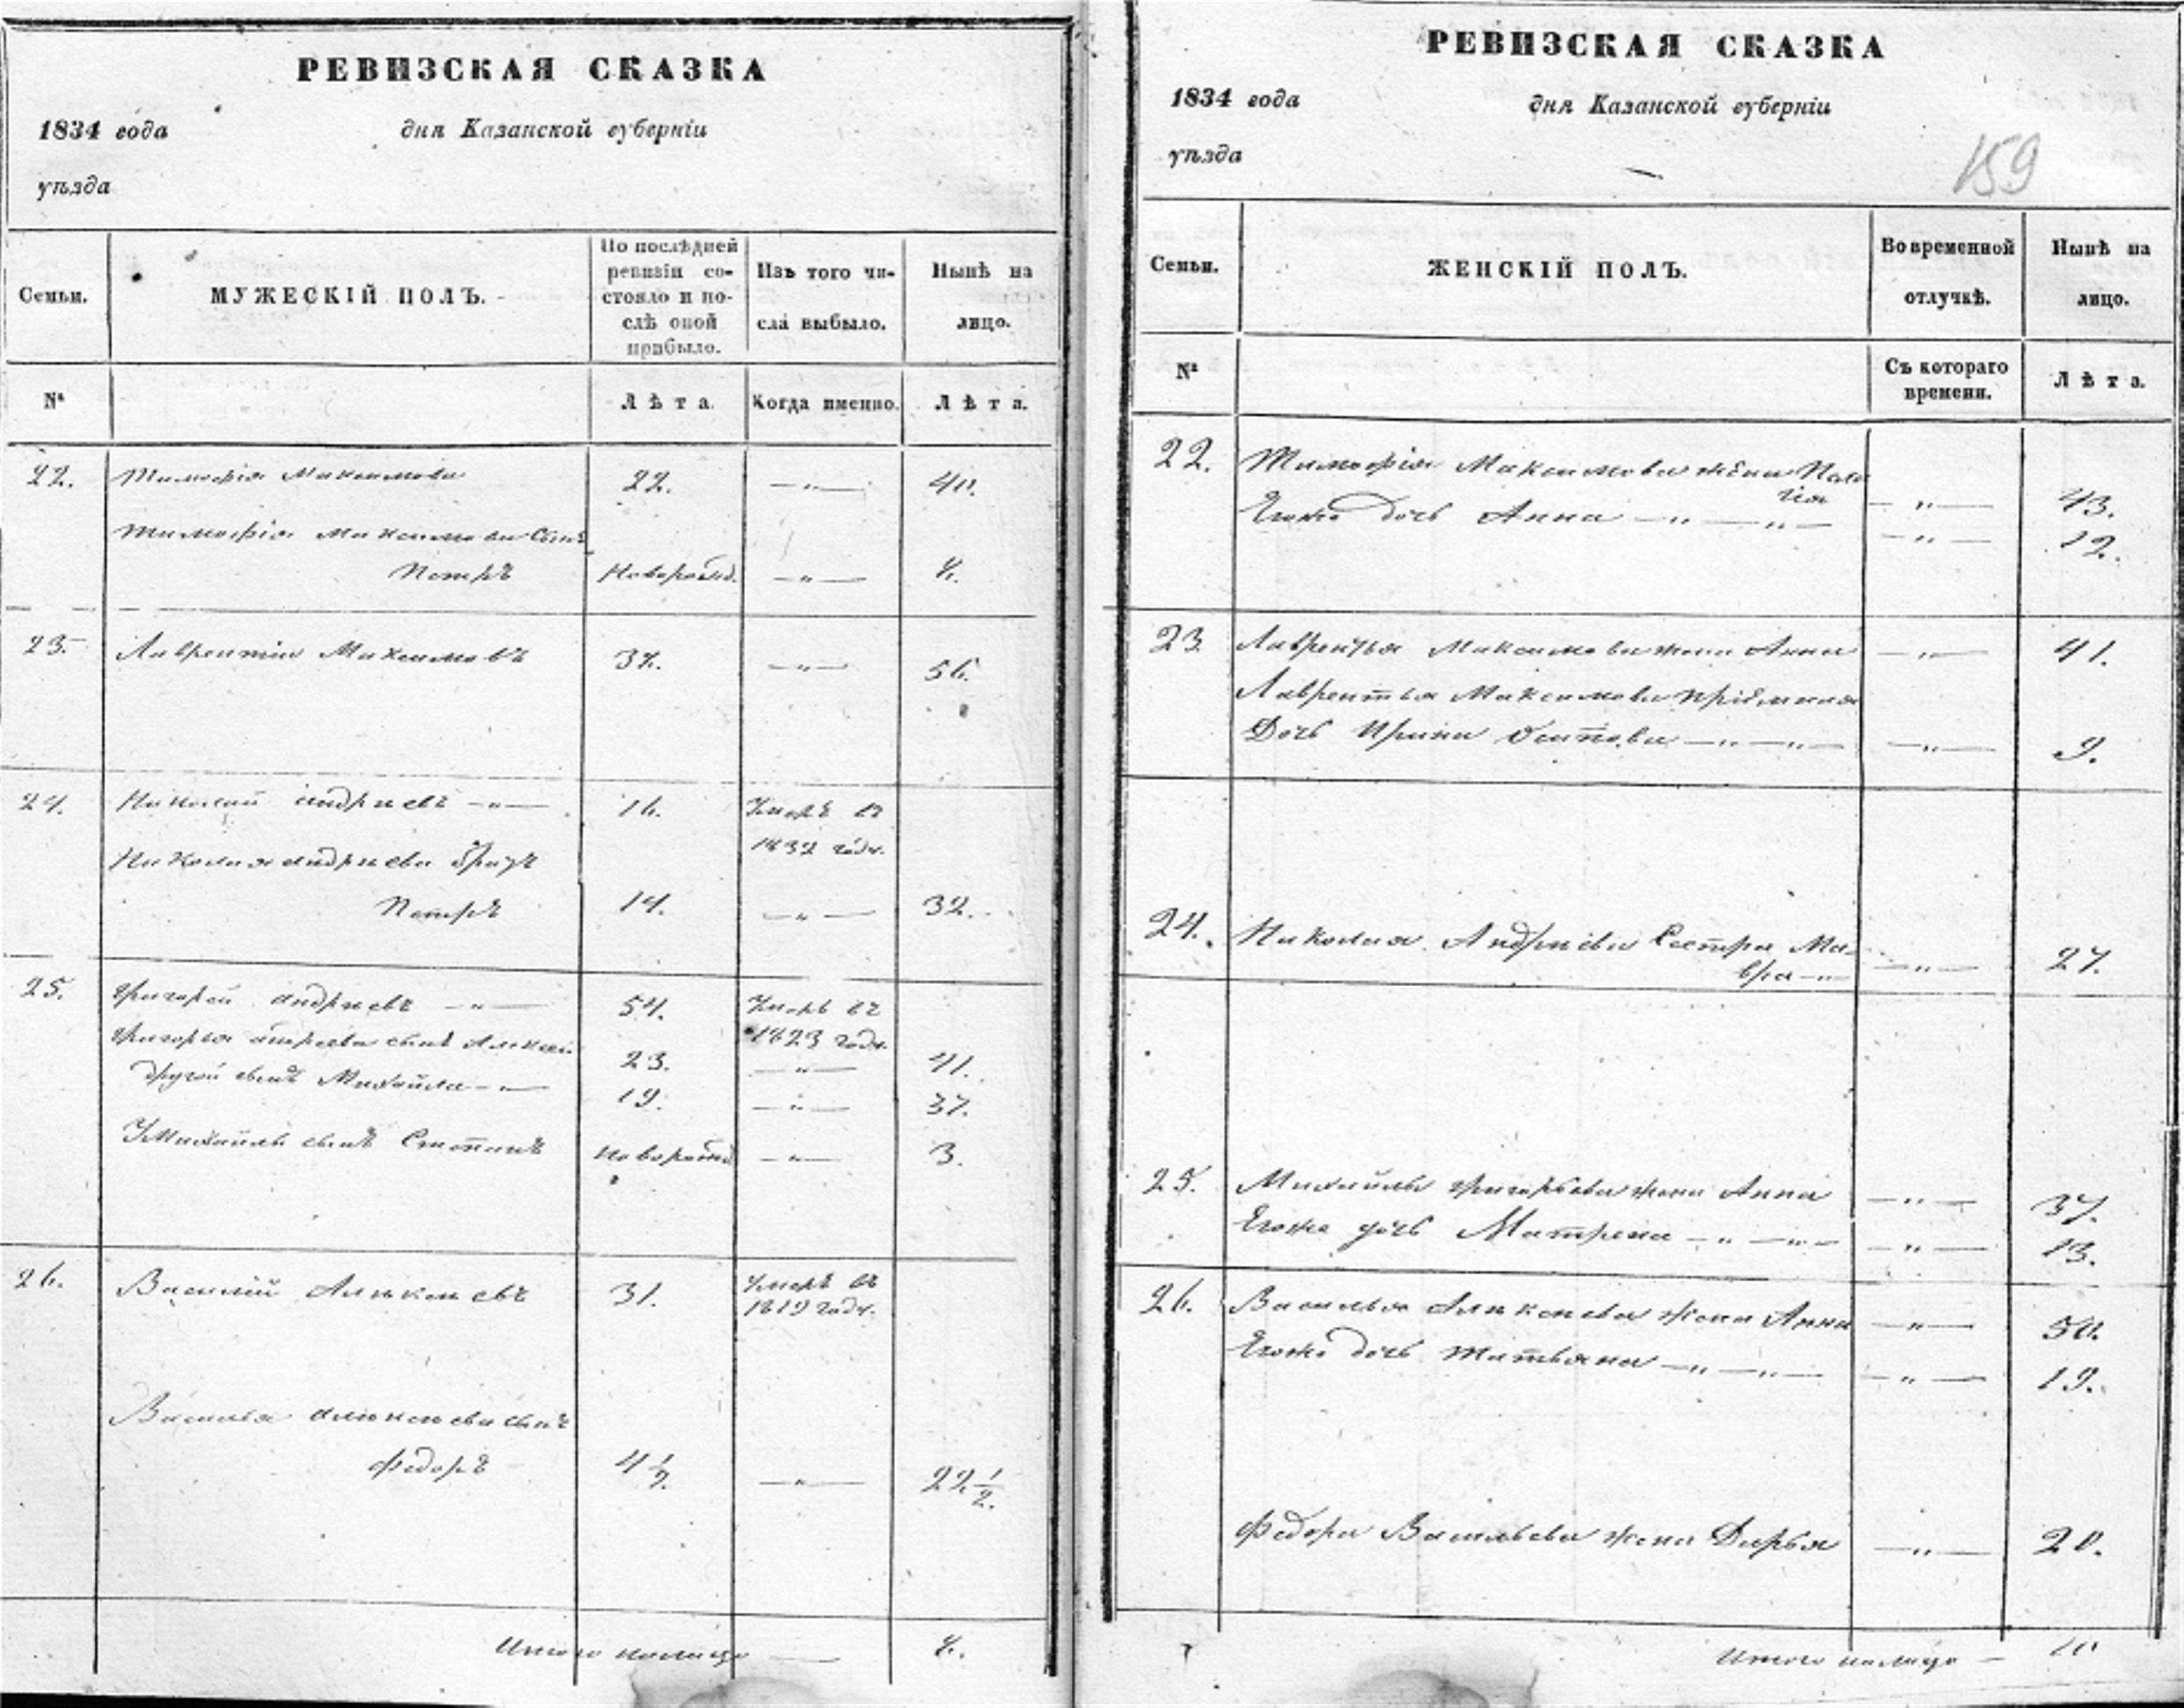 РЕВИЗСКАЯ СКАЗКА
1834 года дня Казанской губерніи
уѣзда
Семьи. МУЖЕСКІЙ ПОЛЪ. По послѣдней ревизіи состояло и послѣ оной прибыло. Изъ того числа выбыло. Нынѣ на лицо.
№ Лѣта. Когда именно. Лѣта.
22. Тимофія Максимова 22. —"— 40.
Тимофія Максимова Сынъ
Петръ Новорожд. —"— 8.
23. Лаврентій Максимовъ 37. —"— 56.
24. Николай андреевъ —"— 16. Умеръ въ
1832 году.
Николая андреева братъ
Петръ 14. —"— 32.
25. Григорей андреевъ —"— 54. Умеръ въ
1823 году.
Григорья андреева сынъ Алексей 23. —"— 41.
другой сынъ Михайла —"— 19. —"— 37.
У Михайлы сынъ Степанъ Новорожд —"— 3.
26. Василій Алексеевъ 31. Умеръ въ
1819 году.
Василья алексеева сынъ
Федоръ 4 1/2. —"— 22 1/2.
Итого налицо — 8.
РЕВИЗСКАЯ СКАЗКА
1834 года дня Казанской губерніи
уѣзда
159
Семьи. ЖЕНСКІЙ ПОЛЪ. Во временной отлучкѣ. Нынѣ на лицо.
№ Съ котораго времени. Лѣта.
22. Тимофія Максимова жена Пела
гія —"— 43.
Егоже дочь Анна —"— —"— —"— 12.
23. Лаврентья Максимова жена Анна —"— 41.
Лаврентья Максимова пріемная
Дочь Ирина Осипова —"— —"— —"— 9.
24. Николая Андреева Сестра Ма-
вра —"— —"— 27.
25. Михайлы григорьева жена Анна —"— 37.
Егоже дочь Матрена —"— —"— —"— 13.
26. Василья Алексеева жена Анна —"— 50.
Егоже дочь Татьяна —"— —"— —"— 19.
Федора Васильева жена Дарья —"— 20.
Итого налицо — 10